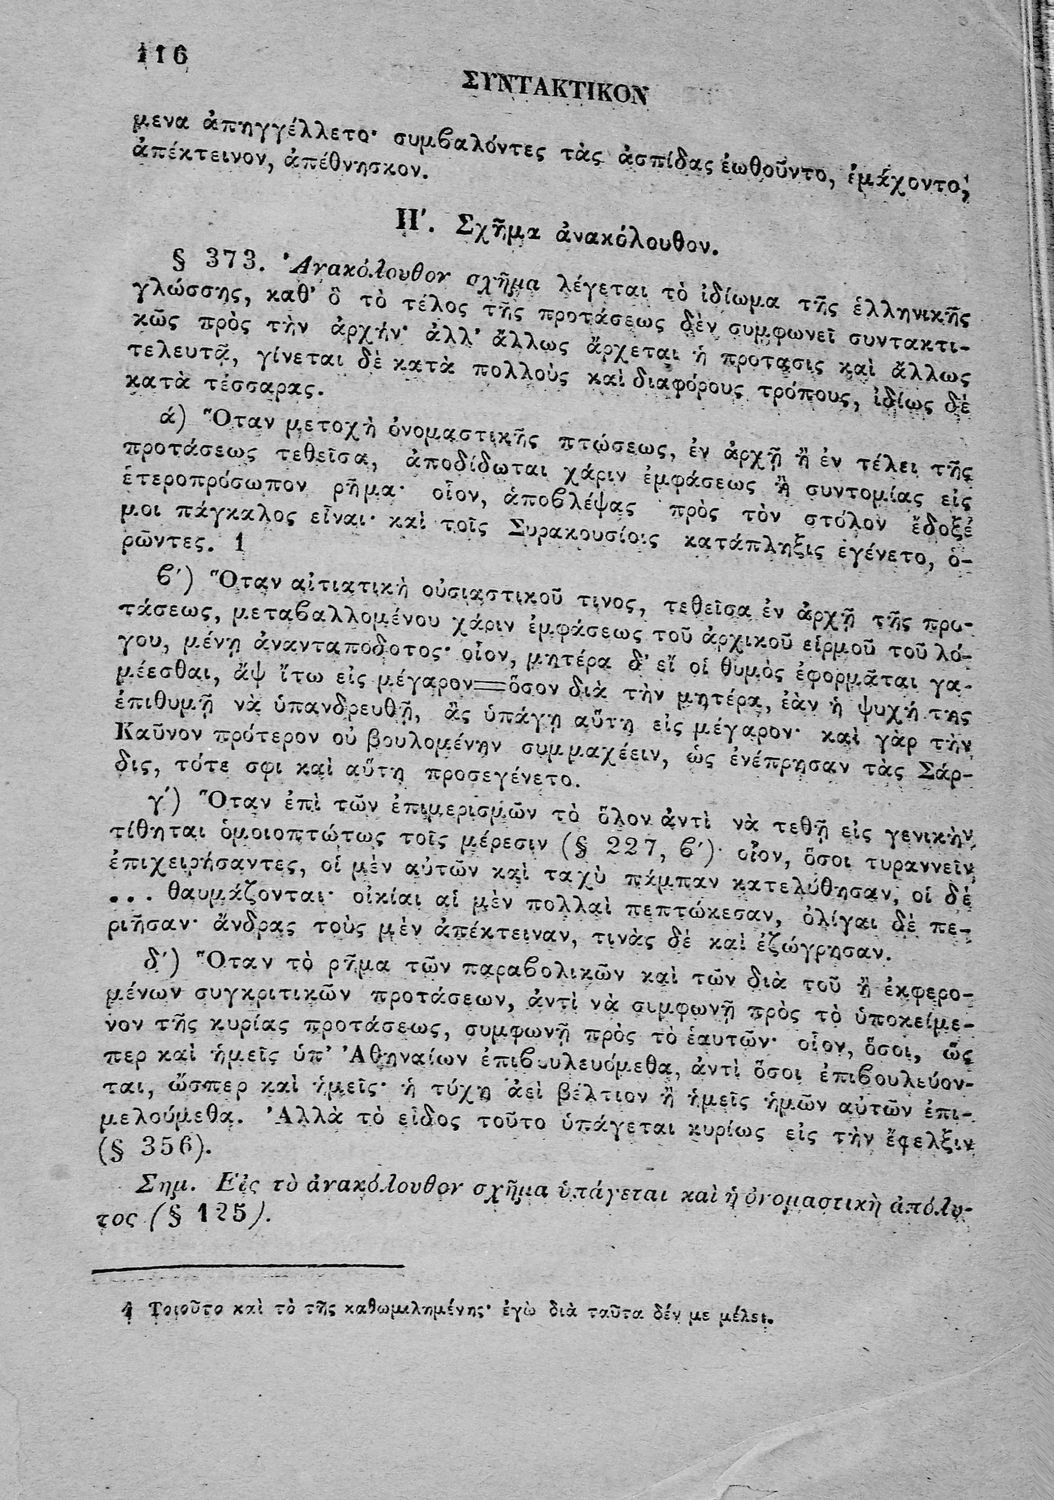 116
ΣΥΝΤΑΚΤΙΚΟΝ
μενα ἀπηγγέλλετο· συμβαλόντες τὰς ἀσπίδας ἐωθοῦντο, ἐμάχοντο,
ἀπέκτεινον, ἀπέθνησκον.
Η΄. Σχῆμα ἀνακόλουθον.
§ 373. Ἀνακόλουθον σχῆμα λέγεται τὸ ἰδίωμα τῆς ἑλληνικῆς
γλώσσης, καθ’ ὃ τὸ τέλος τῆς προτάσεως δὲν συμφωνεῖ συντακτι-
κῶς πρὸς τὴν ἀρχήν· ἀλλ’ ἄλλως ἄρχεται ἡ πρότασις καὶ ἄλλως
τελευτᾷ, γίνεται δὲ κατὰ πολλοὺς καὶ διαφόρους τρόπους, ἰδίως δὲ
κατὰ τέσσαρας.
ά) Ὅταν μετοχὴ ὀνομαστικῆς πτώσεως, ἐν ἀρχῇ ἢ ἐν τέλει τῆς
προτάσεως τεθεῖσα, ἀποδίδωται χάριν ἐμφάσεως ἢ συντομίας εἰς
ἑτεροπρόσωπον ρῆμα· οἷον, ἀποβλέψας πρὸς τὸν στόλον ἔδοξέ
μοι πάγκαλος εἶναι· καὶ τοῖς Συρακουσίοις κατάπληξις ἐγένετο, ὁ-
ρῶντες. 1
β΄) Ὅταν αἰτιατικὴ οὐσιαστικοῦ τινος, τεθεῖσα ἐν ἀρχῇ τῆς προ-
τάσεως, μεταβαλλομένου χάριν ἐμφάσεως τοῦ ἀρχικοῦ εἱρμοῦ τοῦ λό-
γου, μένῃ ἀνανταπόδοτος· οἷον, μητέρα δ’ εἴ οἱ θυμὸς ἐφορμᾶται γα-
μέεσθαι, ἄψ ἴτω εἰς μέγαρον=ὅσον διὰ τὴν μητέρα, ἐὰν ἡ ψυχή της
ἐπιθυμῇ νὰ ὑπανδρευθῇ, ἂς ὑπάγῃ αὕτη εἰς μέγαρον· καὶ γὰρ τὴν
Καῦνον πρότερον οὐ βουλομένην συμμαχέειν, ὡς ἐνέπρησαν τὰς Σάρ-
δις, τότε σφι καὶ αὕτη προσεγένετο.
γ΄) Ὅταν ἐπὶ τῶν ἐπιμερισμῶν τὸ ὅλον ἀντὶ νὰ τεθῇ εἰς γενικὴν,
τίθηται ὁμοιοπτώτως τοῖς μέρεσιν (§ 227, β΄)· οἷον, ὅσοι τυραννεῖν
ἐπιχειρήσαντες, οἱ μὲν αὐτῶν καὶ ταχὺ πάμπαν κατελύθησαν, οἱ δὲ
... θαυμάζονται· οἰκίαι αἱ μὲν πολλαὶ πεπτώκεσαν, ὀλίγαι δὲ πε-
ριῆσαν· ἄνδρας τοὺς μὲν ἀπέκτειναν, τινὰς δὲ καὶ ἐζώγρησαν.
δ΄) Ὅταν τὸ ρῆμα τῶν παραβολικῶν καὶ τῶν διὰ τοῦ ἢ ἐκφερο-
μένων συγκριτικῶν προτάσεων, ἀντὶ νὰ συμφωνῇ πρὸς τὸ ὑποκείμε-
νον τῆς κυρίας προτάσεως, συμφωνῇ πρὸς τὸ ἑαυτῶν· οἷον, ὅσοι, ὥς
περ καὶ ἡμεῖς ὑπ’ Ἀθηναίων ἐπιβουλευόμεθα, ἀντὶ ὅσοι ἐπιβουλεύον-
ται, ὥσπερ καὶ ἡμεῖς· ἡ τύχη ἀεὶ βέλτιον ἢ ἡμεῖς ἡμῶν αὐτῶν ἐπι-
μελούμεθα. Ἀλλὰ τὸ εἶδος τοῦτο ὑπάγεται κυρίως εἰς τὴν ἕφελξιν
(§ 356).
Σημ. Εἰς τὸ ἀνακόλουθον σχῆμα ὑπάγεται καὶ ἡ ὀνομαστικὴ ἀπόλυ-
τος (§ 125).
1 Τοιοῦτο καὶ τὸ τῆς καθωμιλημένης· ἐγὼ διὰ ταῦτα δέν με μέλει.